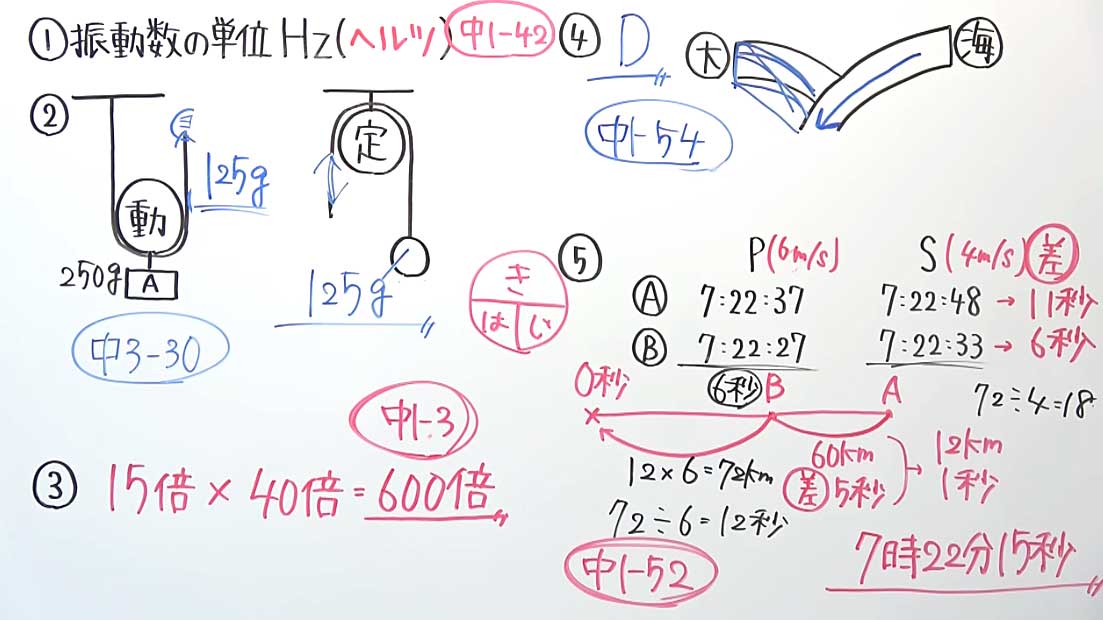 ①振動数の単位Hz(ヘルツ) 中1-42
②
動
125g
250g A
中3-30
定
125g
中1-3
③ 15倍×40倍=600倍
④ D
中1-54
大
海
き
は じ
⑤ P(6m/s) S(4m/s) 差
Ⓐ 7:22:37 7:22:48 → 11秒
Ⓑ 7:22:27 7:22:33 → 6秒
0秒 6秒 B A
72÷4=18
60km → 12km
差 5秒 1秒
12×6=72km
72÷6=12秒
中1-52
7時22分15秒